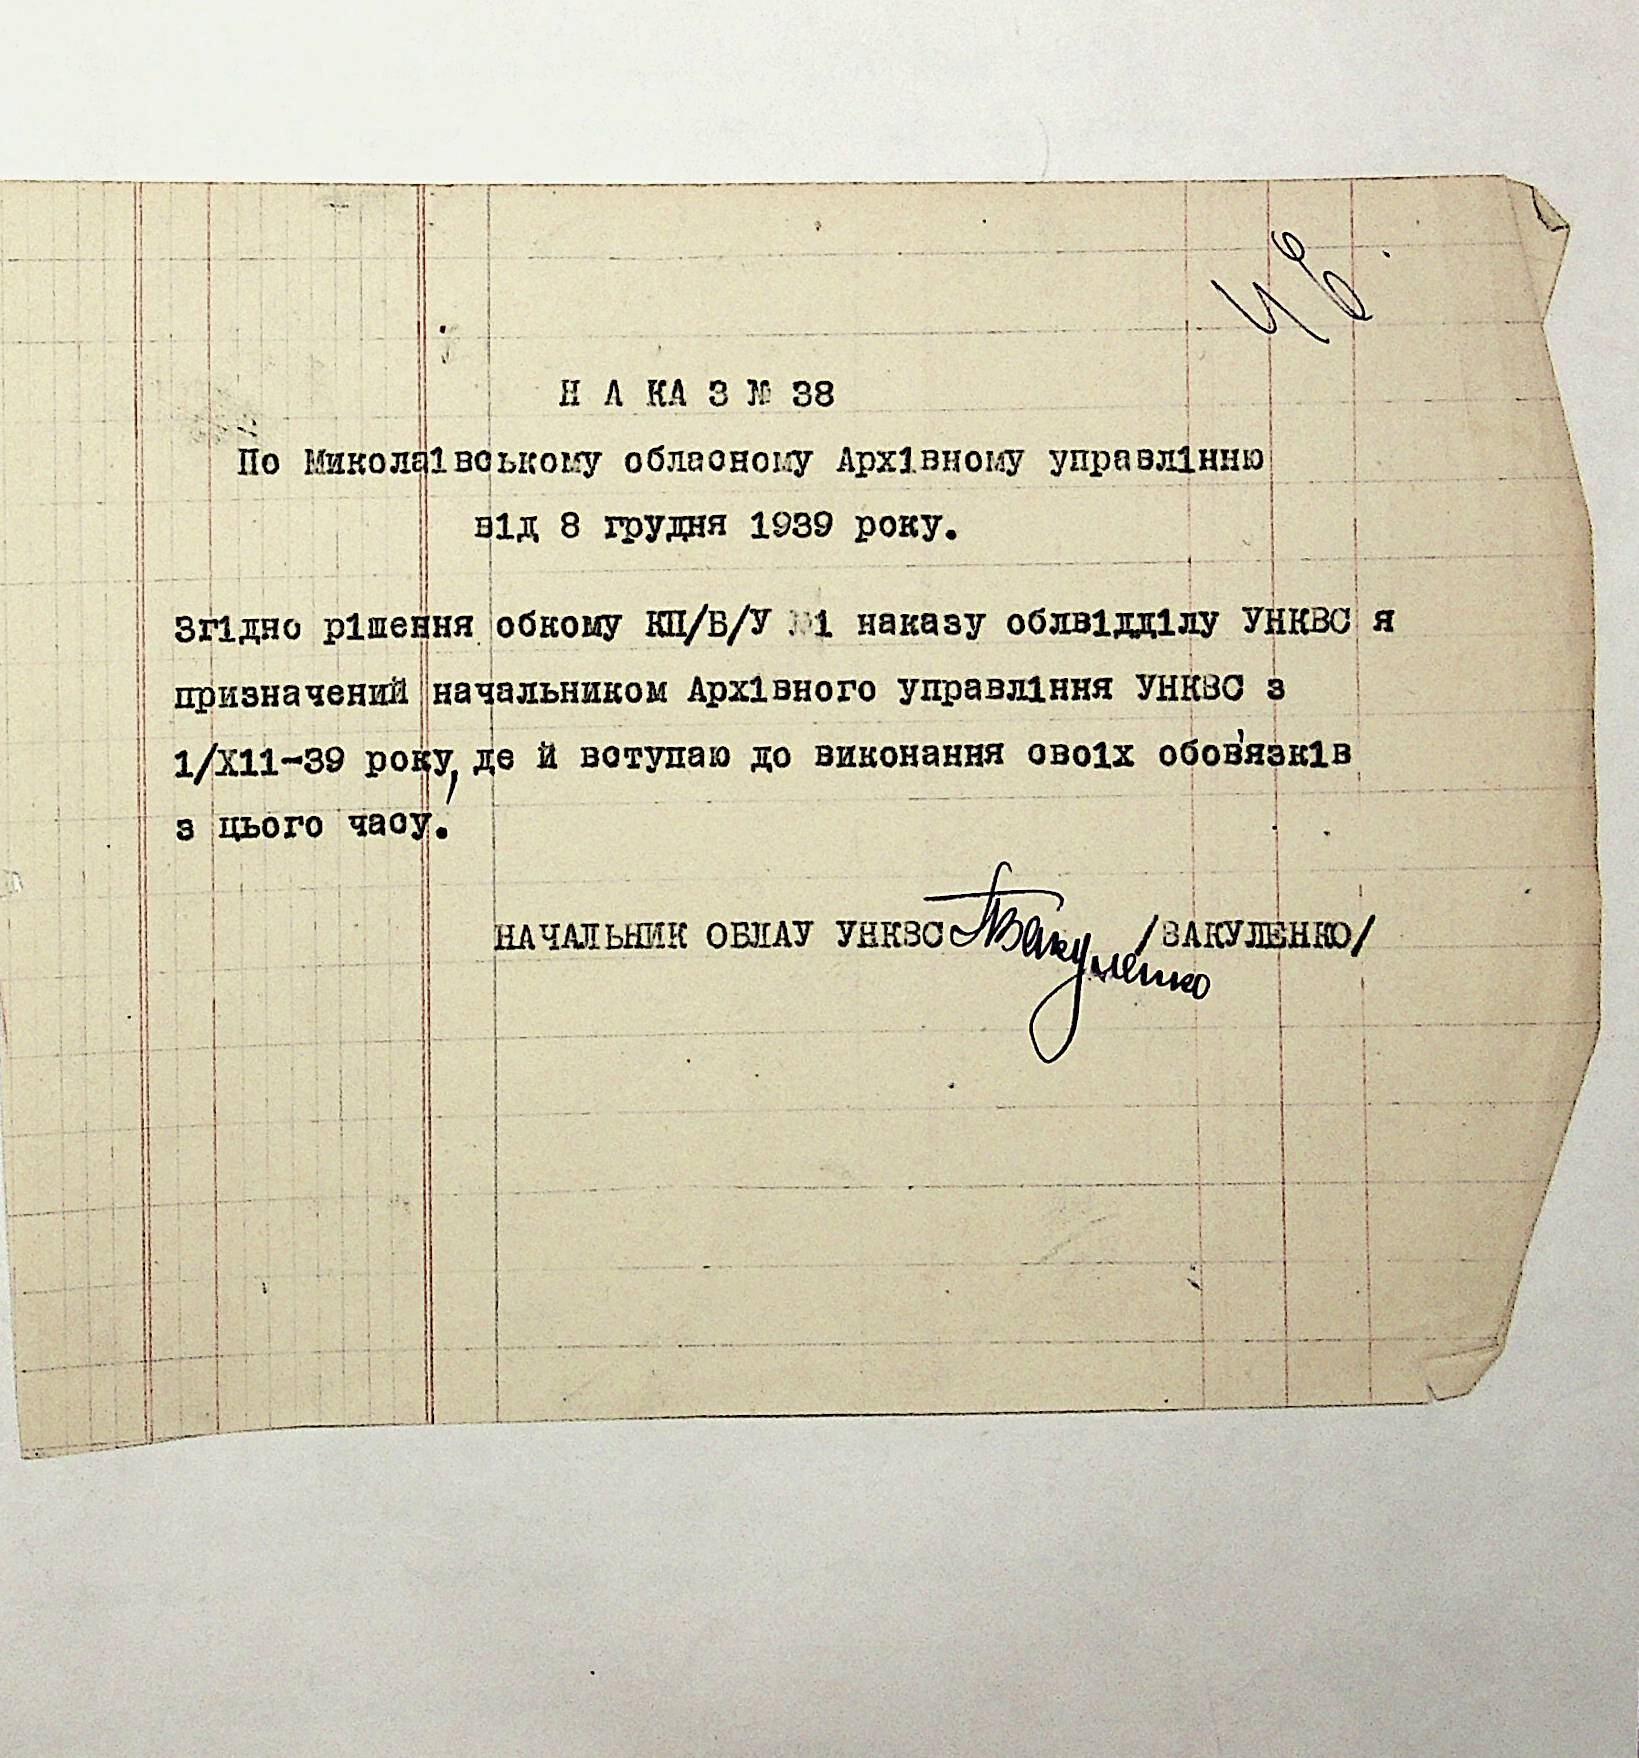 Н А КА З № 38
По Миколаівському обласному Архівному управлінню
від 8 грудня 1939 року.
Згідно рішення обкому КП/Б/У і наказу облвідділу УНКВС я
призначений начальником Архівного управління УНКВС з
1/Х11-39 року, де й вступаю до виконання своіх обов'язків
з цього часу.
НАЧАЛЬНИК ОБЛАУ УНКВС Вакуленко /ВАКУЛЕНКО/